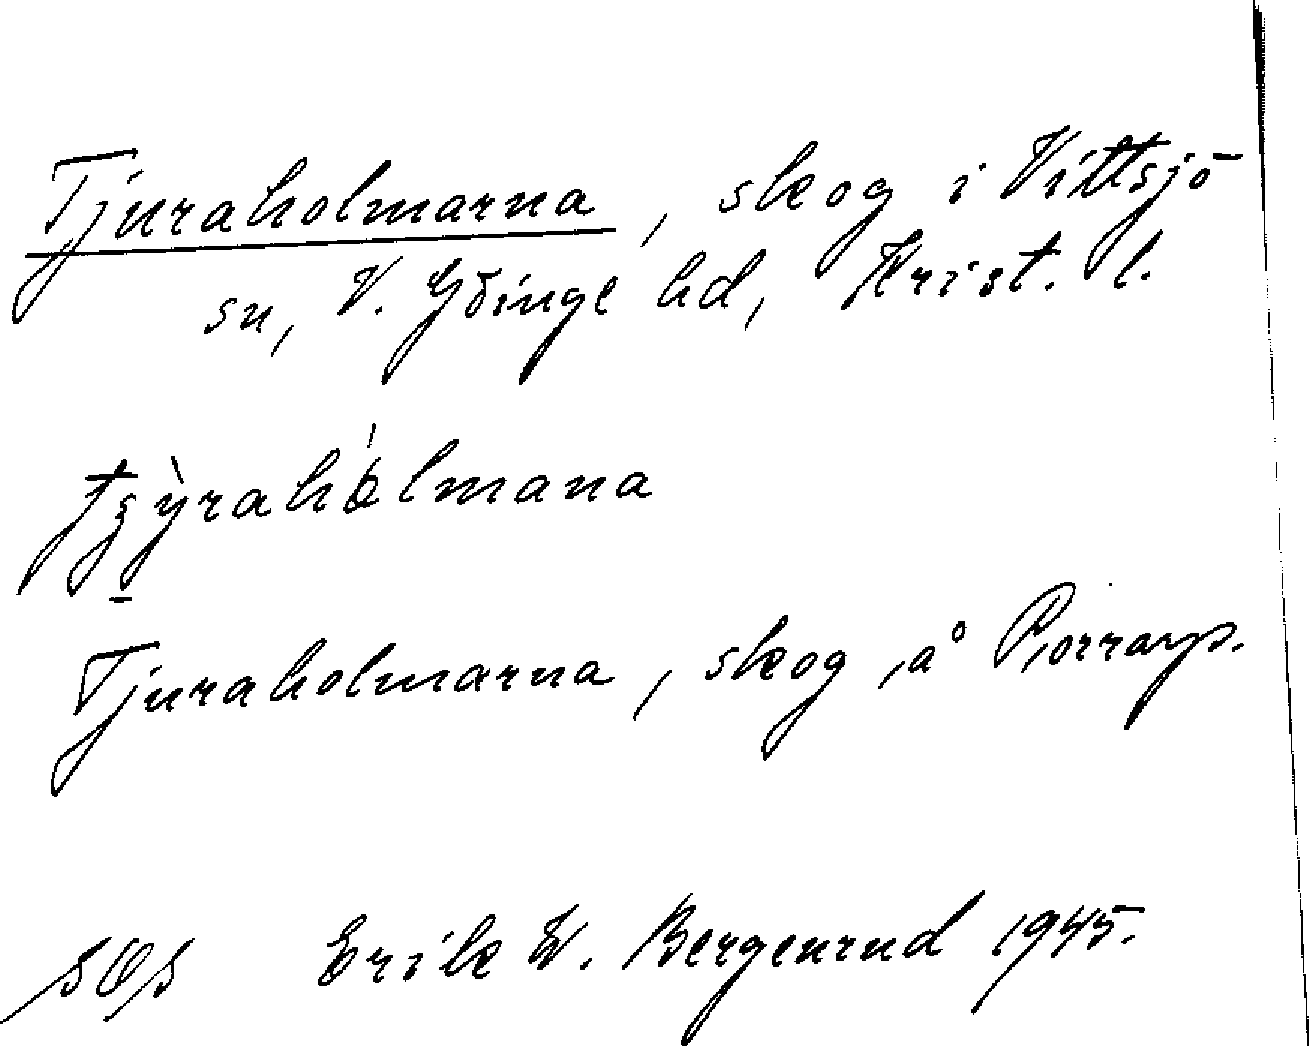 Tjuraholmarna, skog i Vittsjö
sn, V. Göinge hd, Krist. l.
Tjuraholmarna, skog, å Porrarp.
Erik W. Bergenrud 1945.